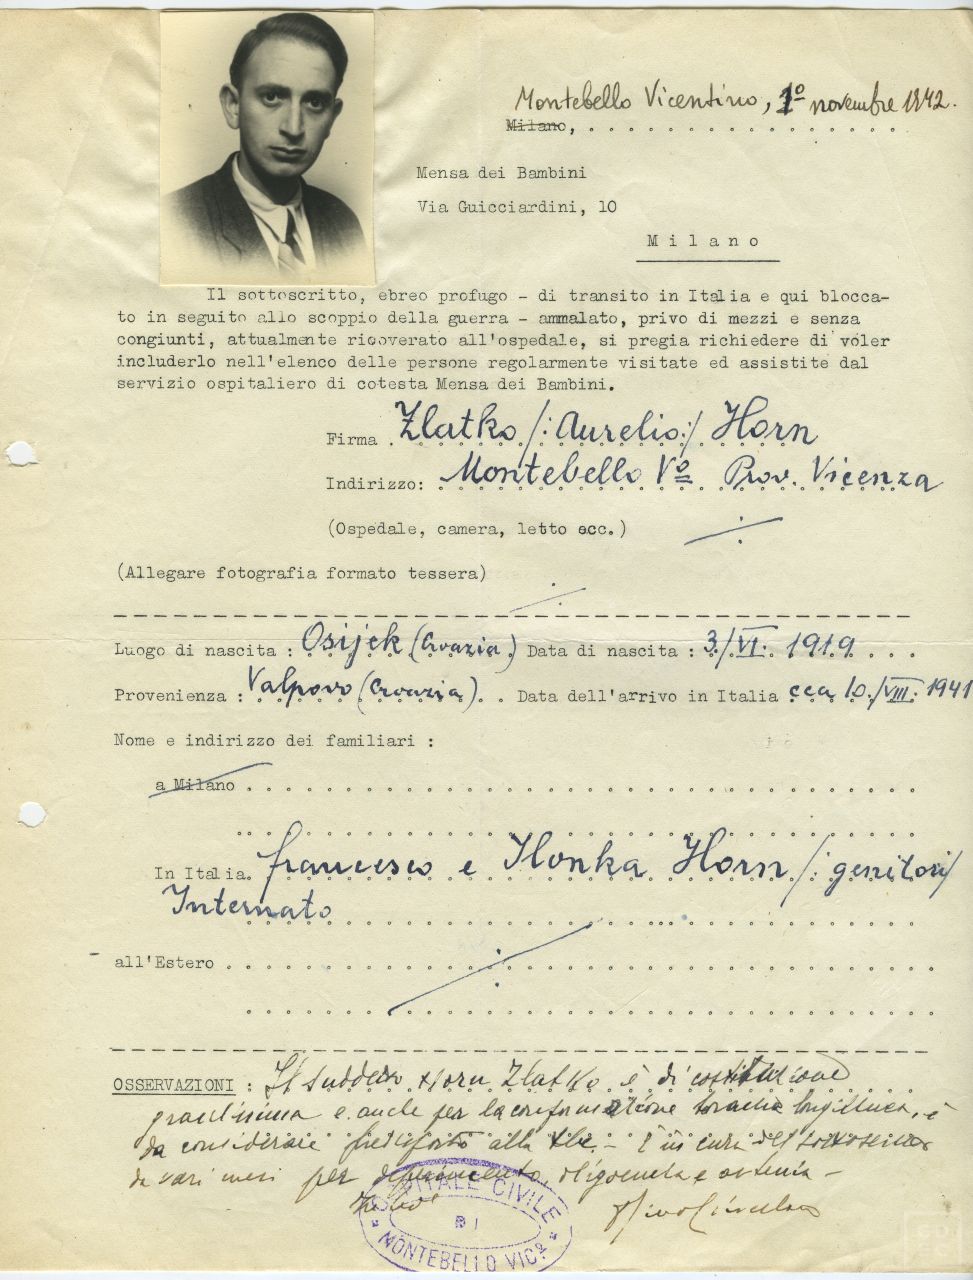 Montebello Vicentino, 1º novembre 1942.
Milano, . . . . . . . . . . . . . . . . .
Mensa dei Bambini
Via Guicciardini, 10
Milano
Il sottoscritto, ebreo profugo - di transito in Italia e qui blocca-
to in seguito allo scoppio della guerra - ammalato, privo di mezzi e senza
congiunti, attualmente ricoverato all'ospedale, si pregia richiedere di voler
includerlo nell'elenco delle persone regolarmente visitate ed assistite dal
servizio ospitaliero di cotesta Mensa dei Bambini.
Firma Zlatko /:Aurelio:/ Horn
Indirizzo: Montebello Vº Prov. Vicenza
(Ospedale, camera, letto ecc.)
(Allegare fotografia formato tessera)
Luogo di nascita : Osijek (Croazia) Data di nascita : 3/VI. 1919
Provenienza : Valpovo (Croazia) Data dell'arrivo in Italia cca 10./VIII. 1941
Nome e indirizzo dei familiari :
a Milano
In Italia. Francesco e Ilonka Horn /:genitori/
Internato
all'Estero
OSSERVAZIONI : Il suddetto Horn Zlatko è di costituzione
gracilissima e anche per la conformazione toracica longilinea, è
da considerare predisposto alla tbc. - È in cura del sottoscritto
da vari mesi per deperimento, oligoemia e astenia -
OSPITALE CIVILE
DI
MONTEBELLO VICº